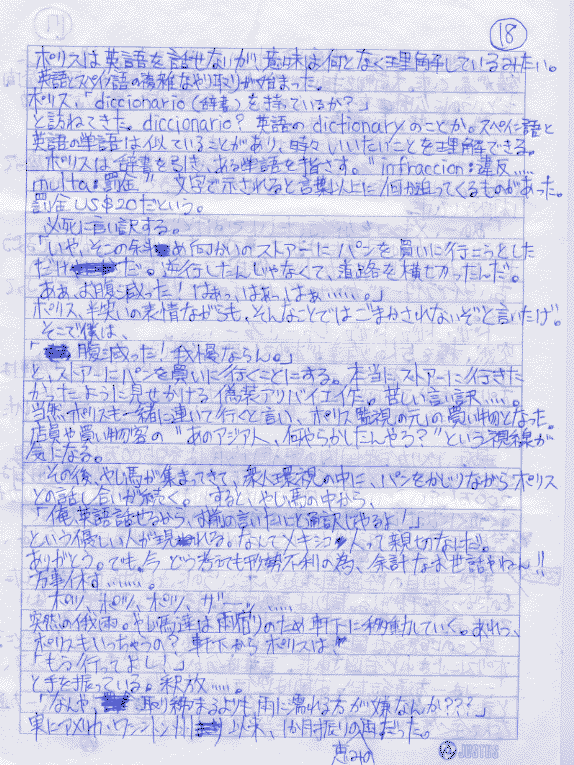 18
ポリスは英語を話せないが、意味は何となく理解しているみたい。
英語とスペイン語の複雑なやり取りが始まった。
ポリス、「diccionario(辞書)を持っているか?」
と訪ねてきた。diccionario? 英語のdictionaryのことか。スペイン語と
英語の単語は似ていることがあり、時々いいたいことを理解できる。
ポリスは辞書を引き、ある単語を指さす。"infraccion:違反……
multa:罰金" 文字で示されると言葉以上に何か迫ってくるものがあった。
罰金US$20だという。
必死に言い訳する。
「いや、そこの斜め向かいのストアーにパンを買いに行こうとした
だけだ。逆行したんじゃなくて、道路を横切かったんだ。
ああ、お腹減った!はぁっ、はぁっ、はぁ……。」
ポリス、半笑いの表情ながらも、そんなことではごまかされないぞと言いたげ。
そこで僕は、
「腹減った!我慢ならん。」
と、ストアーにパンを買いに行くことにする。本当にストアーに行きた
かったように見せかける偽装アリバイ工作だ。苦しい言い訳……。
当然、ポリスも一緒に連いて行くと言い、ポリス監視の元の買い物となった。
店員や買い物客の"あのアジア人、何やらかしたんやろ?"という視線が
気になる。
その後、やじ馬が集まってきて、衆人環視の中に、パンをかじりながらポリス
との話し合いが続く。すると、やじ馬の中から、
「俺、英語話せるから、お前の言いたいこと通訳してやるよ!」
という優しい人が現れる。なんてメキシコ人って親切なんだ。
ありがとう。でも、今どう考えても形勢不利の為、余計なお世話やねん!!
万事休す……。
ポツ、ポツ、ポツ、ザー……
突然の俄雨。やじ馬達は雨宿りのため軒下に移動していく。あれっ、
ポリスもいっちゃうの?軒下からポリスは、
「もう行ってよし!」
と手を振っている。釈放……。
「なんや、取り締まるよりも雨に濡れる方が嫌なんか???」
実にアメリカ・ワシントン州以来、1か月振りの雨だった。
恵みの
JUSTUS